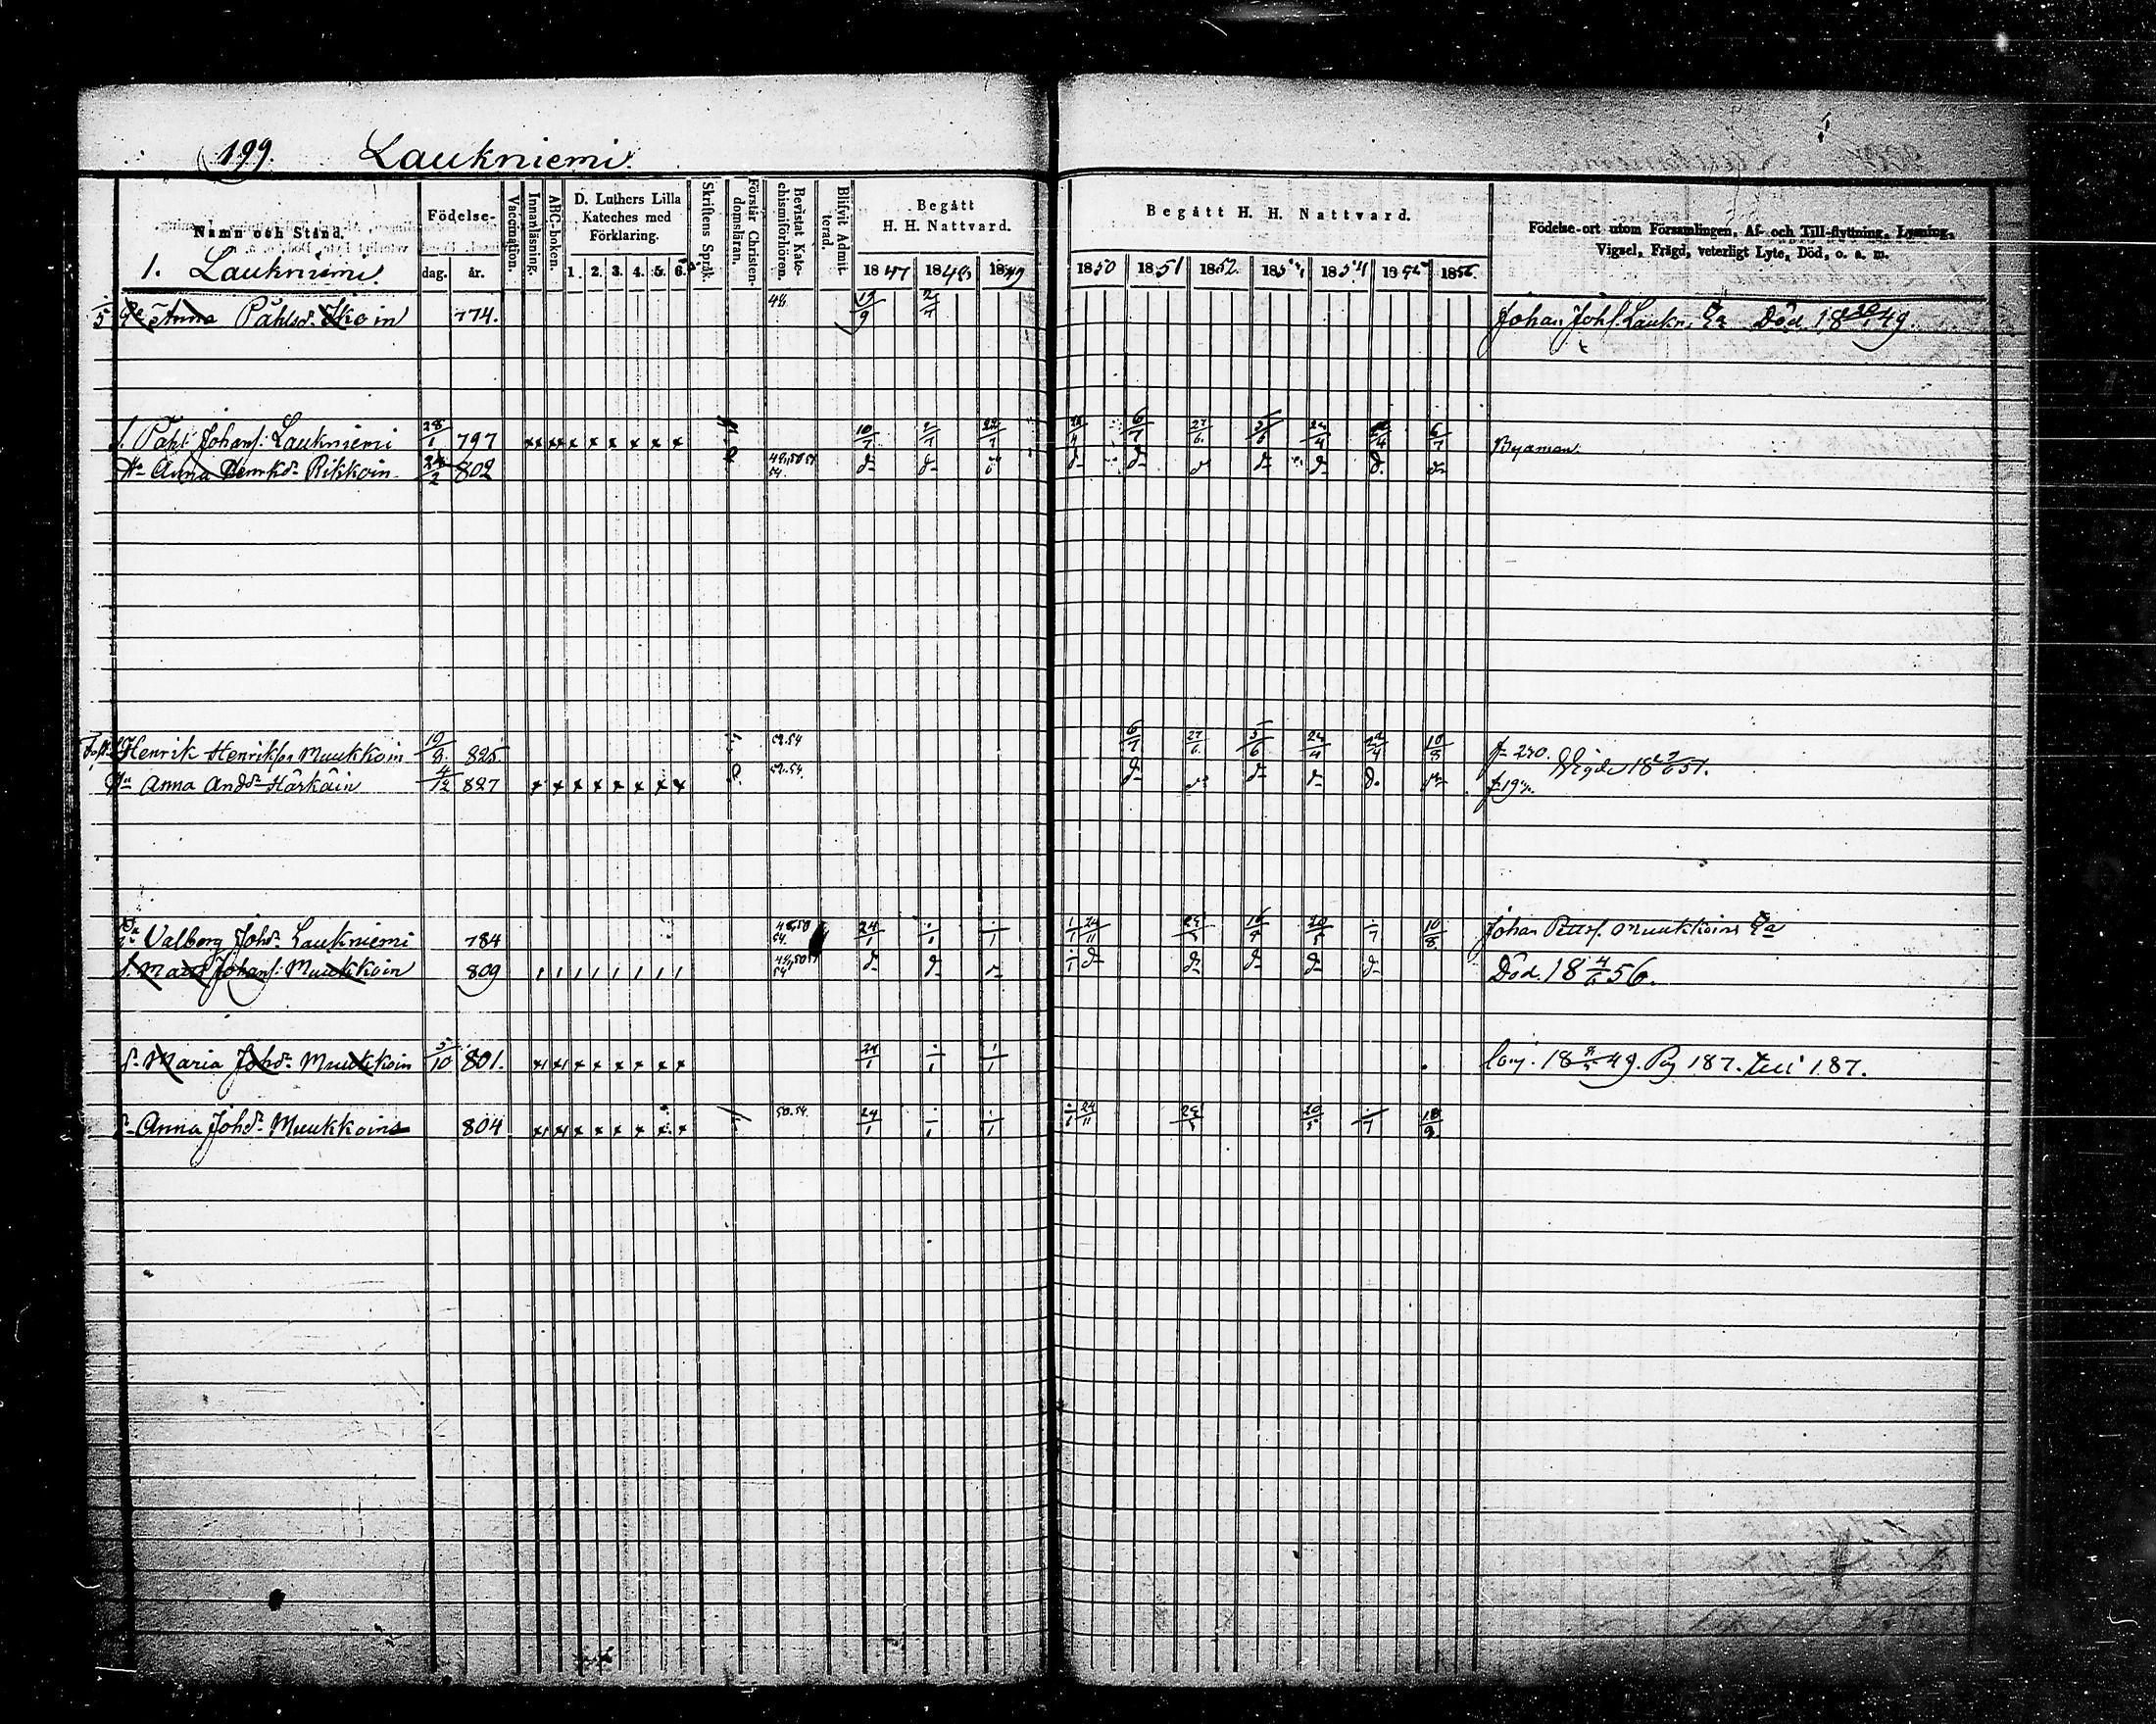 199. Laukniemi.
Namn och Stånd. Födelse- dag. år. Vaccination. Innanläsning. ABC-boken. D. Luthers Lilla Kateches med Förklaring. 1. 2. 3. 4. 5. 6. Skriftens Språk. Förstår Christendomsläran. Bevistat Katechismiförhören. Blifvit Admitterad. Begått H. H. Nattvard. 1847 1848 1849
Begått H. H. Nattvard. 1850 1851 1852. 1853 1854 1855 1856.
Födelse-ort utom Församlingen, Af- och Till-flyttning, Lysning, Vigsel, Frägd, veterligt Lyte, Död, o. s. m.
1. Laukniemi.
Anna Påhlsdr. Ikoin 774. 48 19/9 2/7 Johan Johs. Laukn. Ea Död. 18 49.
s. Påhl Johans. Laukniemi 28/1 797 x x x x x x x x 10/7 2/7 22/7 6/7 27/6. 5/6 24/4 6/7 Byaman.
Hu Anna Henrksdr Rikkoin 24/2 802 54. d- d- d- d- d- d- d. d-
Henrik Henriksson Muukkoin 19/9. 825. 52.54 6/7 27/6. 5/6 24/4 24/4 10/8 fr 240. Vigde 18 51.
Hu Anna Andsdr Härkäin 4/12 827 x x x x x x x x 52.54. d- d- d- d- d. d-
Valborg Johsdr. Laukniemi 784 48,50 54. 24/1 1/1 1/1 24/11 20/5 1/7 10/8 Johan Peters. Muukkoins Ea
s. Mats Johans. Muukkoin 809 1 1 1 1 1 1 1 1 54 d- d- d- d- d- d- d- d- Död. 18 4/6 56.
Maria Johdr. Muukkoin 5/10 801. x x x x x x x x 24/1 1/1 1/1 Conj. 18 49. Pag 187. 187.
Anna Johdr. Muukkoins 804 x x x x x x x x 50.54. 24/1 1/1 1/1 24/11 20/5 1/7